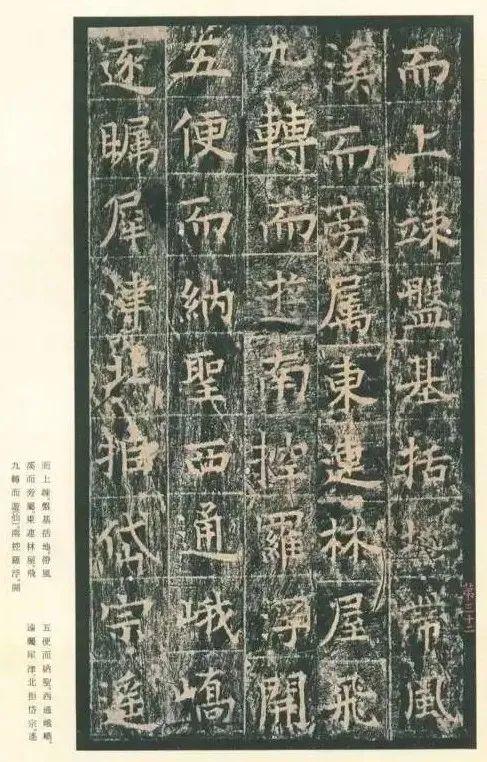 而上竦盤基括地帶風
溪而旁属東連林屋飛
九轉而南控羅浮開
五便而納聖西通峨嶠
遂矚犀津北拒岱宗遥
第三十二
而上竦。盤基括地。帶風
溪而旁屬。東連林屋。飛
九轉而遊仙。南控羅浮。開
五便而納聖。西通峨嶠。
遠矚犀津。北拒岱宗。遙